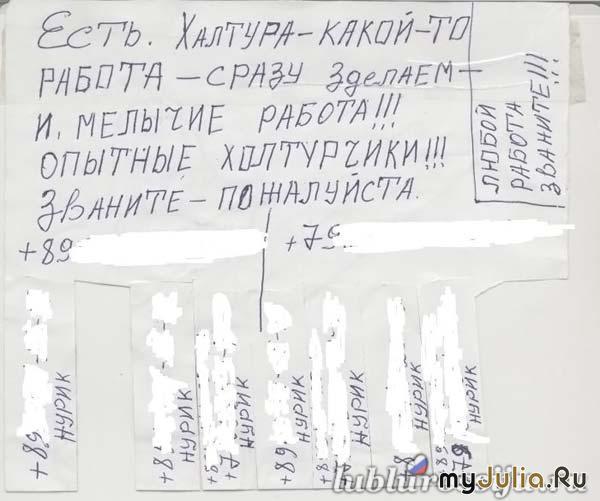 Есть. Халтура-какой-то
работа - сразу зделаем -
и, мелычие работа!!!
опытные холтурчики!!!
Званите - пожалуйста.
+89
+79
любой
работа
званите!!!
+89
Нурик
+8
Нурик
+9
+7
Нурик
+89
Нурик
+8
+7
Нурик
8
Нурик
+89
+79
Нурик
myJulia.Ru